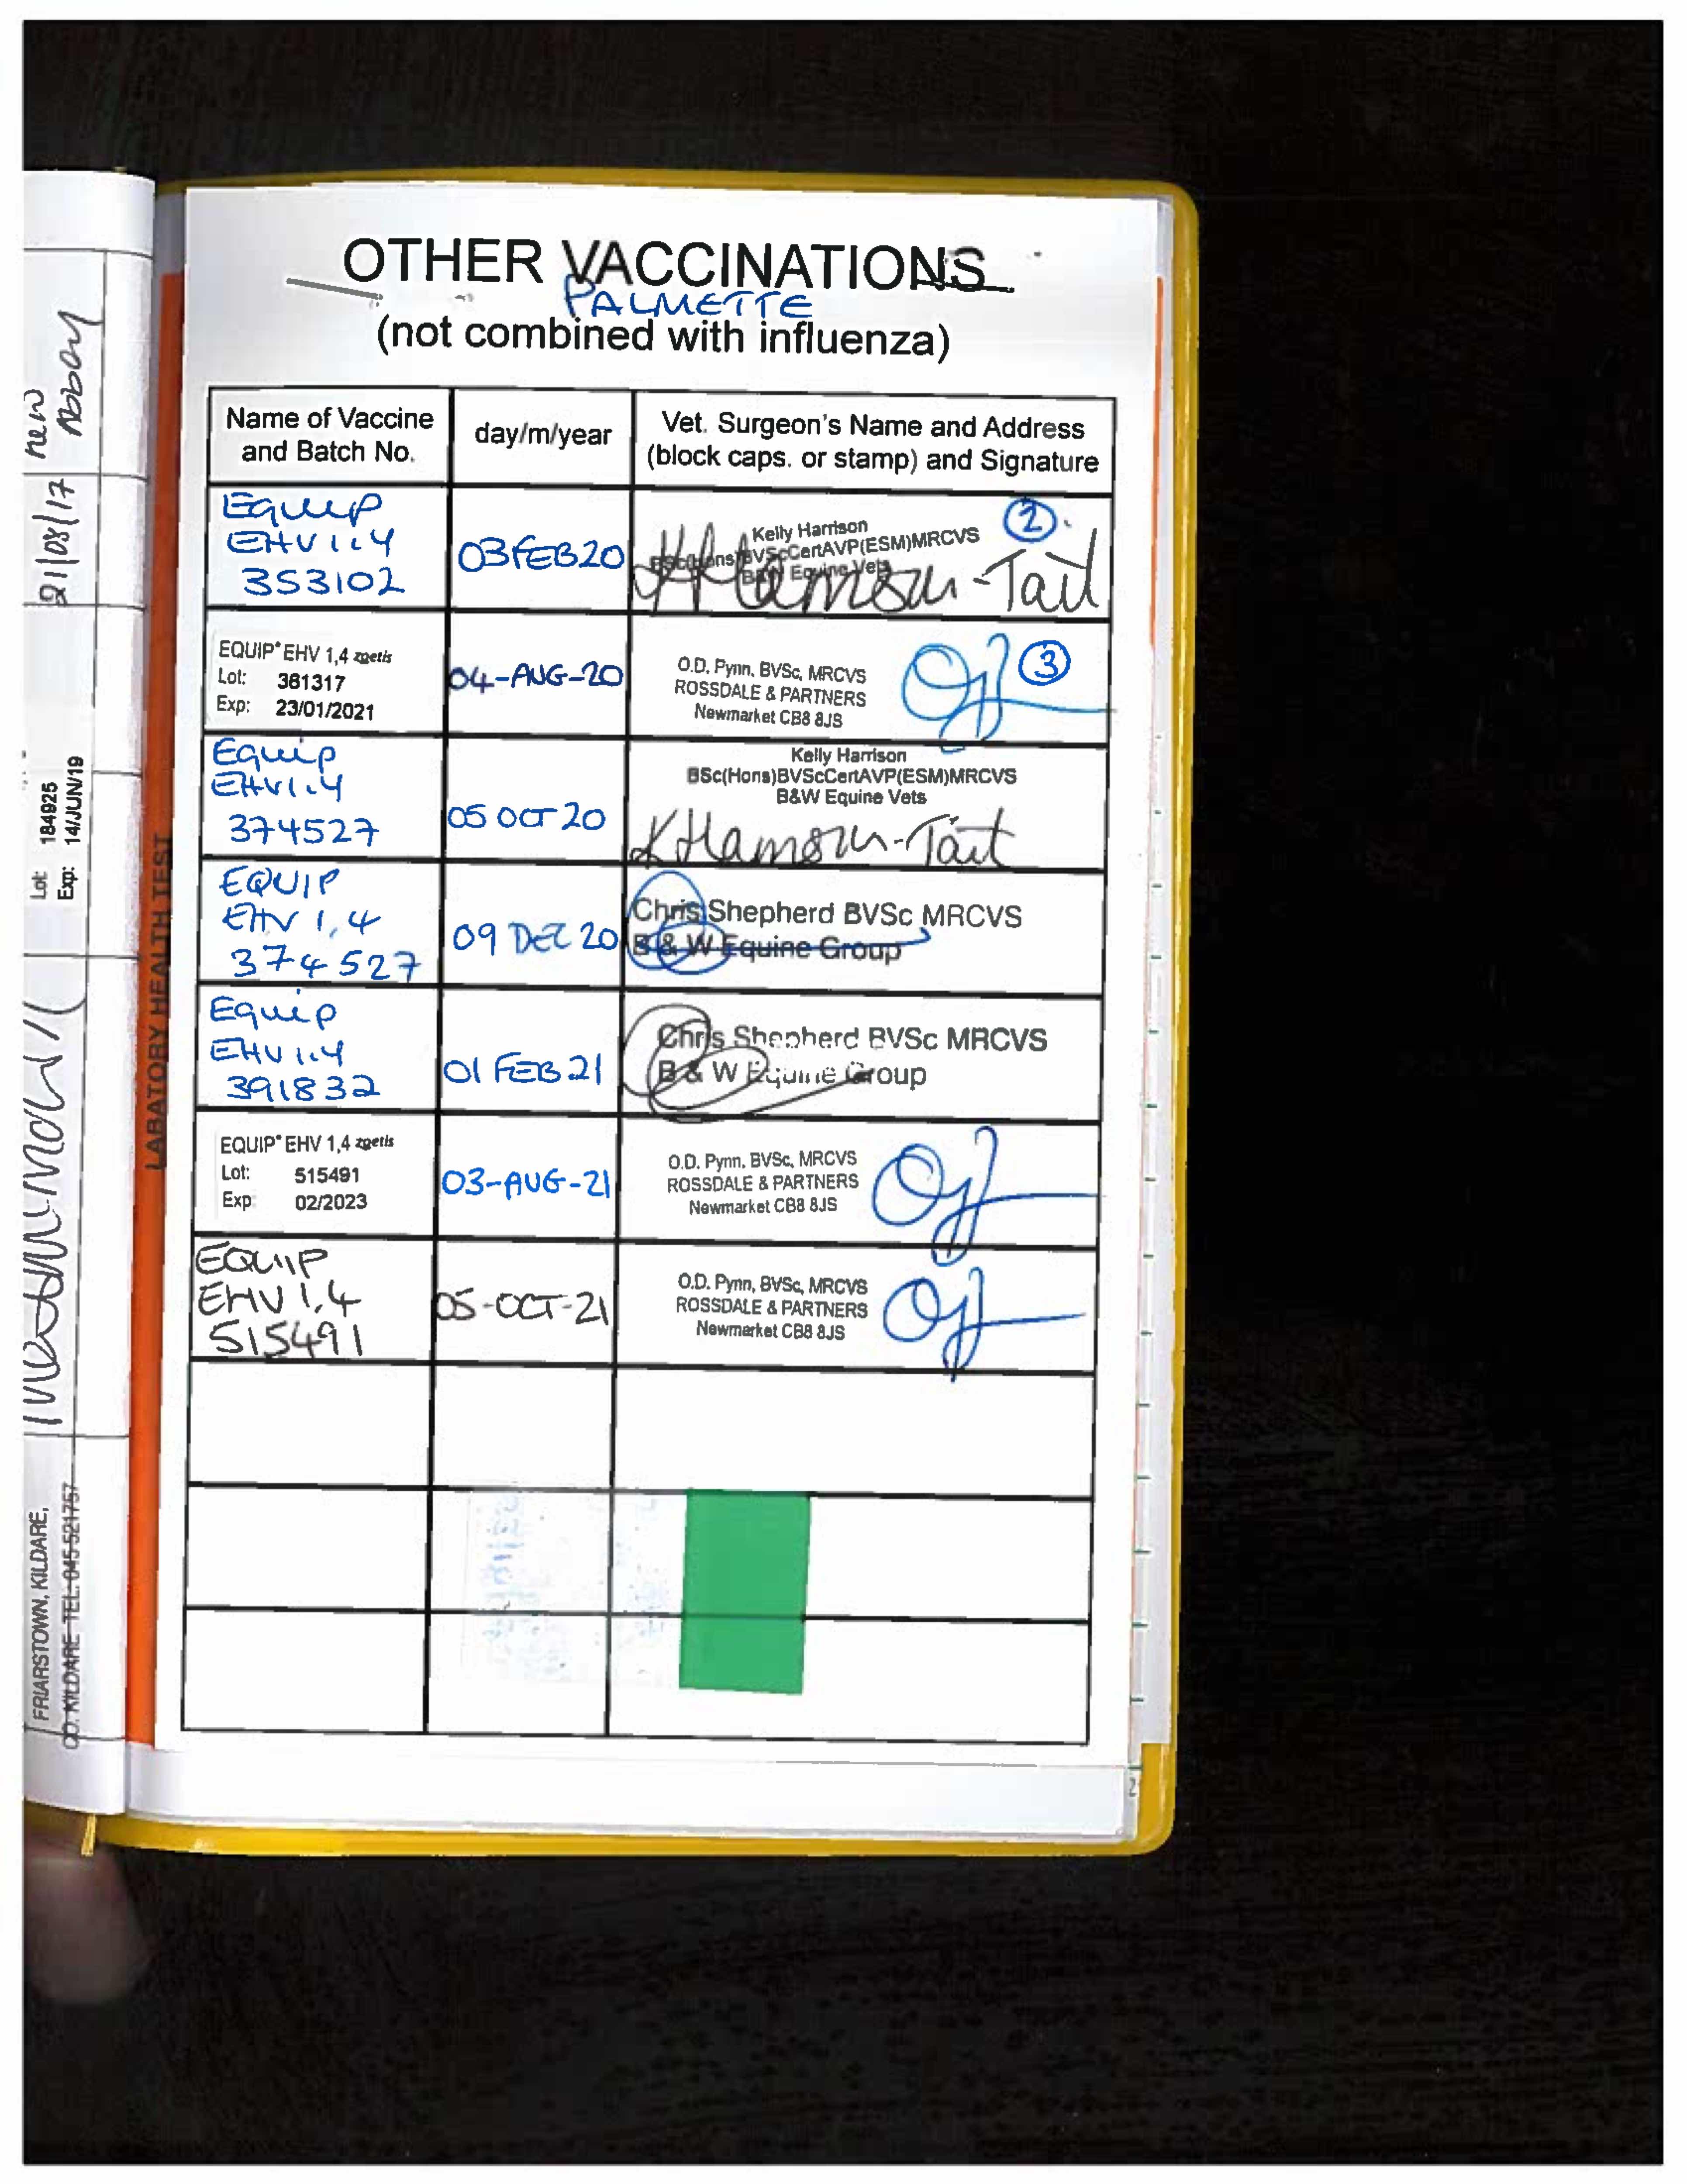 OTHER VACCINATIONS
PALMETTE
(not combined with influenza)
Name of Vaccine
and Batch No.
day/m/year
Vet. Surgeon's Name and Address
(block caps. or stamp) and Signature
Equip
EHV 1.4
353102
03 FEB 20
Kelly Harrison
BSc(Hons)BVScCertAVP(ESM)MRCVS
B&W Equine Vets
KHarrison-Tait
2
EQUIP® EHV 1,4 zoetis
Lot: 361317
Exp: 23/01/2021
04-AUG-20
O.D. Pynn, BVSc, MRCVS
ROSSDALE & PARTNERS
Newmarket CB8 8JS
3
Equip
EHV 1.4
374527
05 OCT 20
Kelly Harrison
BSc(Hons)BVScCertAVP(ESM)MRCVS
B&W Equine Vets
KHarrison-Tait
EQUIP
EHV 1,4
374527
09 DEC 20
Chris Shepherd BVSc MRCVS
B & W Equine Group
Equip
EHV 1.4
391832
01 FEB 21
Chris Shepherd BVSc MRCVS
B & W Equine Group
EQUIP® EHV 1,4 zoetis
Lot: 515491
Exp: 02/2023
03-AUG-21
O.D. Pynn, BVSc, MRCVS
ROSSDALE & PARTNERS
Newmarket CB8 8JS
EQUIP
EHV 1,4
515491
05-OCT-21
O.D. Pynn, BVSc, MRCVS
ROSSDALE & PARTNERS
Newmarket CB8 8JS
2
LABATORY HEALTH TEST
new
Abbey
21/08/17
Lot: 184925
Exp: 14/JUN/19
FRIARSTOWN, KILDARE,
CO. KILDARE TEL: 045-521757